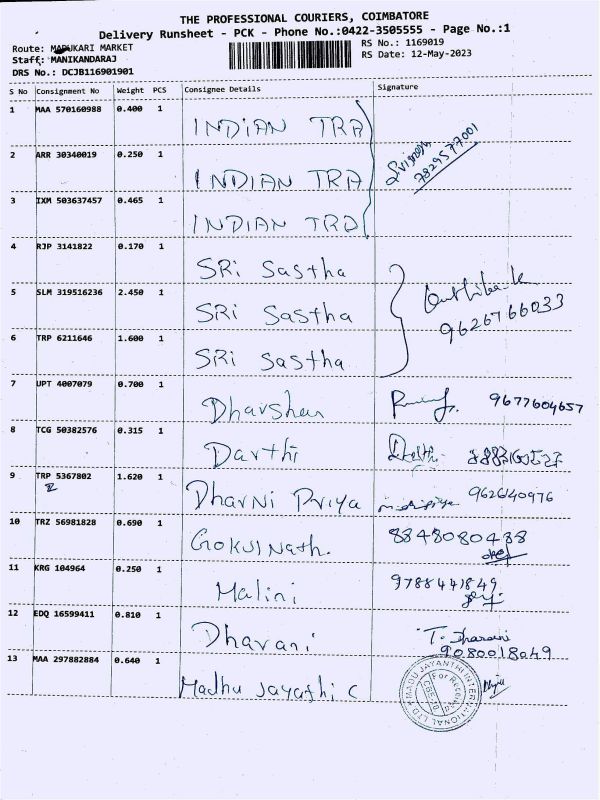 THE PROFESSIONAL COURIERS, COIMBATORE
Delivery Runsheet - PCK - Phone No.:0422-3505555 - Page No.:1
Route: MADUKARI MARKET RS No.: 1169019
Staff: MANIKANDARAJ RS Date: 12-May-2023
DRS No.: DCJB116901901
S No Consignment No Weight PCS Consignee Details Signature
1 MAA 570160988 0.400 1 INDIAN TRA
2 ARR 30340019 0.250 1 INDIAN TRA 7829577001
3 IXM 503637457 0.465 1 INDIAN TRD
4 RJP 3141822 0.170 1 SRi Sastha
5 SLM 319516236 2.450 1 SRi Sastha 9626766033
6 TRP 6211646 1.600 1 SRi Sastha
7 UPT 4007079 0.700 1 Dharshan 9677604657
8 TCG 50382576 0.315 1 Darthi
9 TRP 5367802 1.620 1 Dharni Priya 9626140976
10 TRZ 56981828 0.690 1 Gokulnath. 8848080488
11 KRG 104964 0.250 1 Malini 9788441849
12 EDQ 16599411 0.810 1 Dharani T. Dharani
9080018049
13 MAA 297882884 0.640 1 Madhu Jayathi C
MADU JAYANTHI INTERNATIONAL LTD
For Receipt